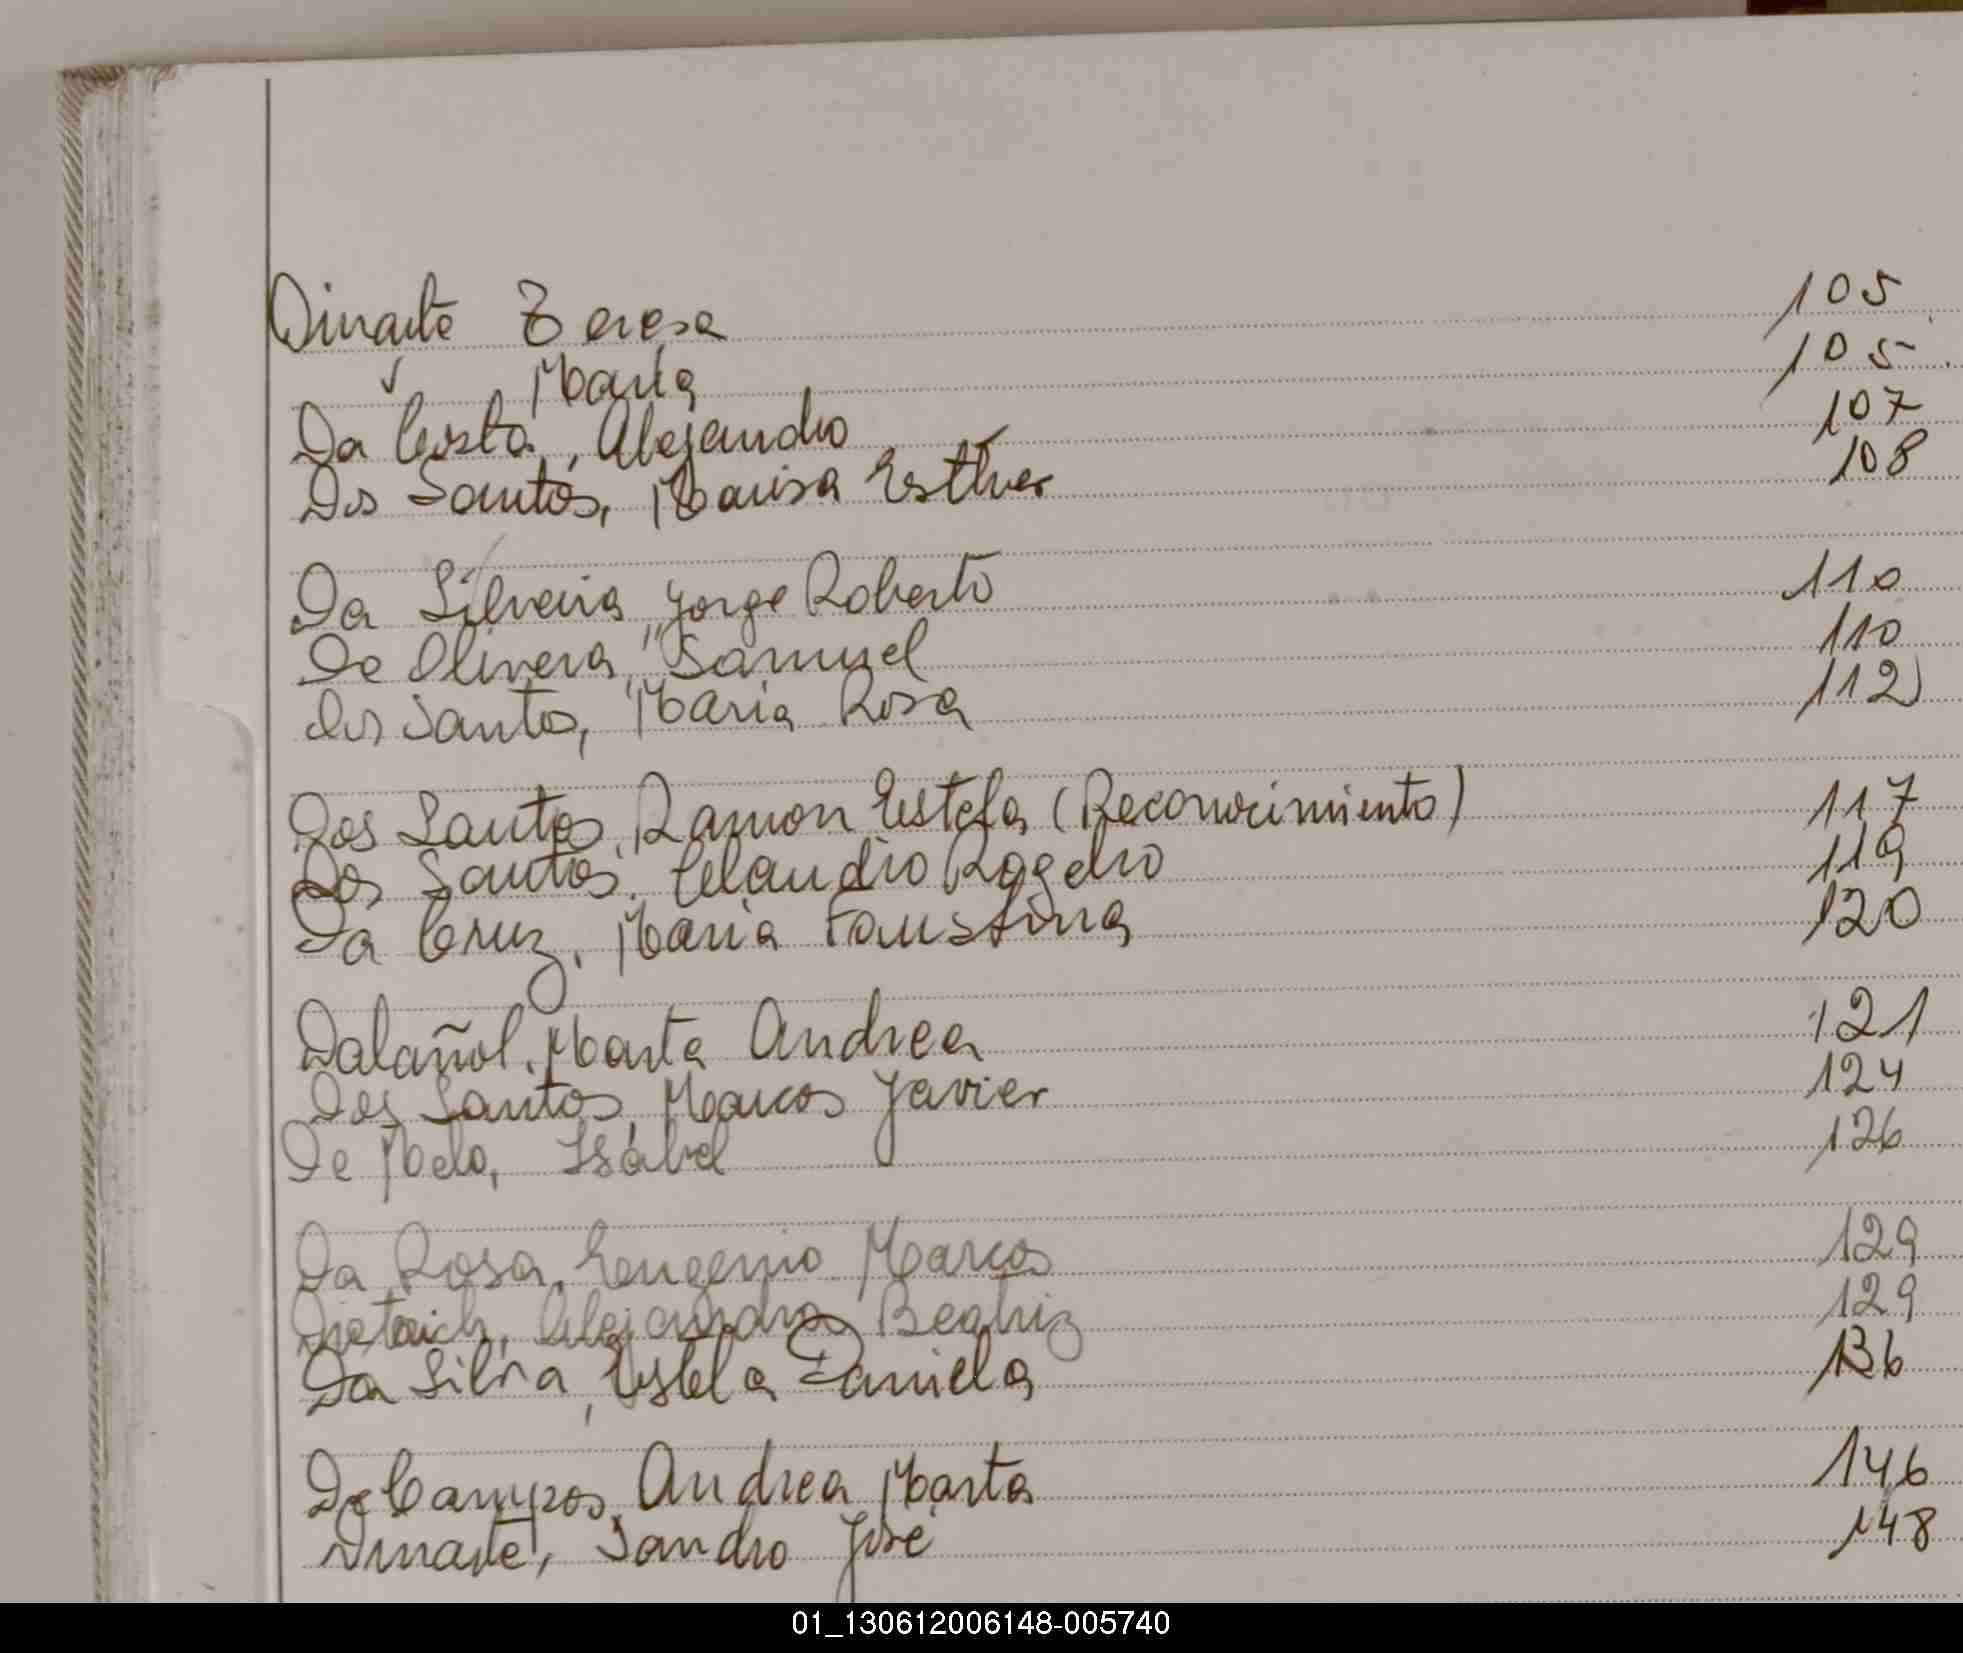 Dinarte Teresa 105
✓ Marta 105
Da Costa, Alejandro 107
Dos Santos, Marisa Esther 108
Da Silveira, Jorge Roberto 110
De Olivera, Samuel 110
dos Santos, Maria Rosa 112
Dos Santos, Ramon Estefa (Reconocimiento) 117
Dos Santos, Claudio Rogelio 119
Da Cruz, Maria Faustina 120
Dalañol, Marta Andrea 121
Dos Santos, Marcos Javier 124
De Melo, Isabel 126
Da Rosa, Eugenio Marcos 129
Alejandra Beatriz 129
Da Silva, Estela Daniela 136
De Campos, Andrea Marta 146
Dinarte, Sandro José 148
01_130612006148-005740